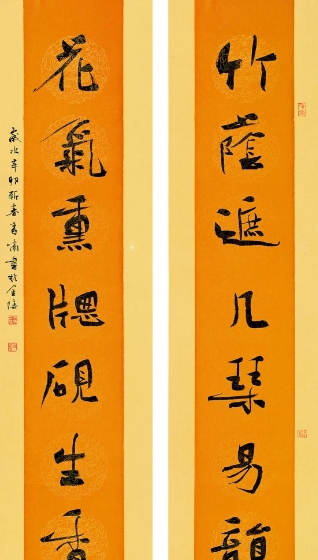 竹蔭遮几琹易韻
花氣熏牕硯生香
歲次辛卯新春青甫書於金陵